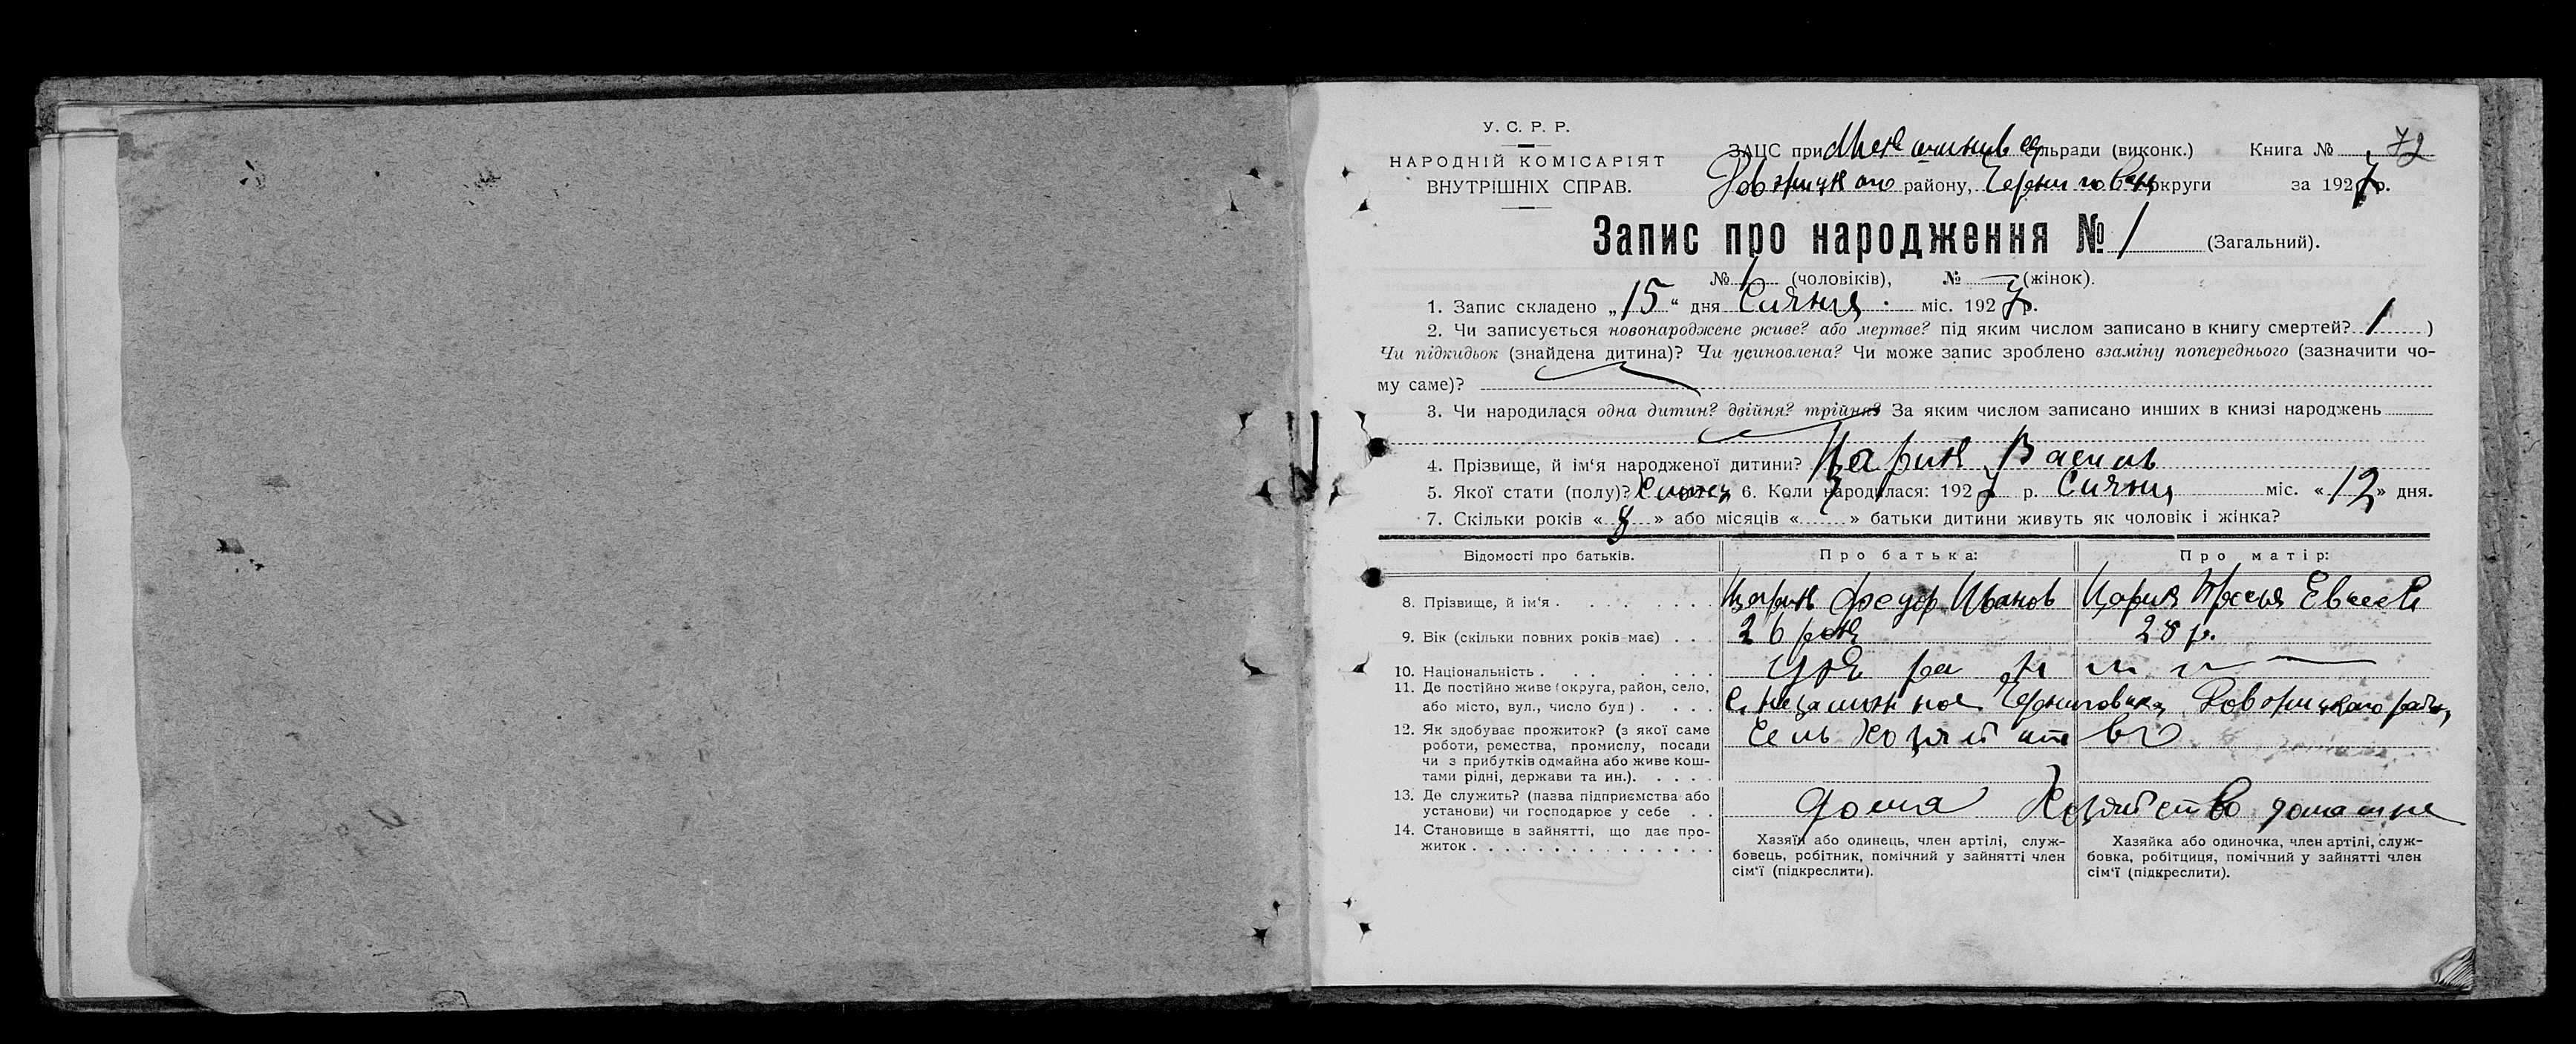 У. С. Р. Р.
НАРОДНІЙ КОМІСАРІЯТ
ВНУТРІШНІХ СПРАВ.
ЗАЦС при сільради (виконк.) Книга № 72
району, округи за 1927 р.
Запис про народження № 1 (Загальний).
№ 1 (чоловіків), № — (жінок).
1. Запис складено „15“ дня Січня міс. 1927 р.
2. Чи записується новонароджене живе? або мертве? під яким числом записано в книгу смертей? 1 )
Чи підкидьок (знайдена дитина)? Чи усиновлена? Чи може запис зроблено взаміну попереднього (зазначити чо-
му саме)?
3. Чи народилася одна дитин? двійня? трійня? За яким числом записано инших в книзі народжень
4. Прізвище, й ім‘я народженої дитини? Царик Василь
5. Якої стати (полу)? 6. Коли народилася: 1927 р. Січня міс. «12» дня.
7. Скільки років «8» або місяців « » батьки дитини живуть як чоловік і жінка?
Відомості про батьків. Про батька: Про матір:
8. Прізвище, й ім‘я . Царик Федур Иванов Царик
9. Вік (скільки повних років має) . . . 26 рок 28 р.
10. Національність . украинці
11. Де постійно живе (округа, район, село,
або місто, вул., число буд) .
12. Як здобуває прожиток? (з якої саме
роботи, ремества, промислу, посади
чи з прибутків одмайна або живе кош-
тами рідні, держави та ин.). Сель Хозяйство
13. Де служить? (назва підприємства або
установи) чи господарює у себе . . дома Хозяйство домашне
14. Становище в зайнятті, що дає про-
житок .
Хазяїн або одинець, член артілі, служ-
бовець, робітник, помічний у зайнятті член
сім‘ї (підкреслити).
Хазяйка або одиночка, член артілі, служ-
бовка, робітциця, помічний у зайнятті член
сім‘ї (підкреслити).